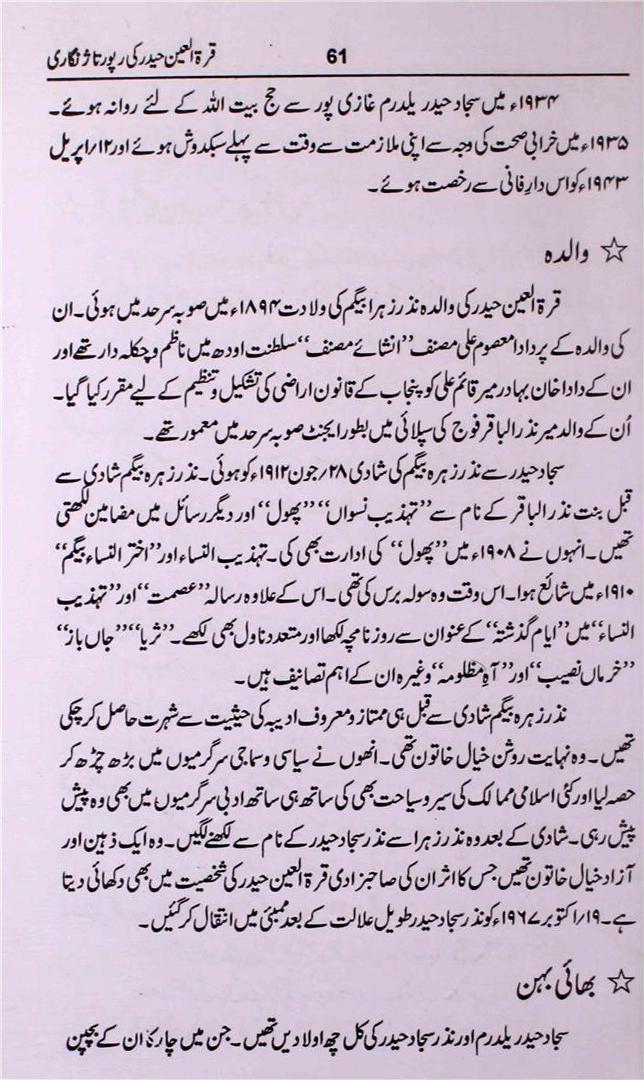 قرۃ العین حیدر کی رپورتاژ نگاری
61
۱۹۳۴ء میں سجاد حیدر یلدرم غازی پور سے حج بیت اللہ کے لئے روانہ ہوئے۔
۱۹۳۵ء میں خرابی صحت کی وجہ سے اپنی ملازمت سے وقت سے پہلے سبکدوش ہوئے اور ۱۲/اپریل
۱۹۴۳ء کو اس دارِ فانی سے رخصت ہوئے۔
☆ والدہ
قرۃ العین حیدر کی والدہ نذر زہرا بیگم کی ولادت ۱۸۹۴ء میں صوبہ سرحد میں ہوئی۔ ان
کی والدہ کے پردادا معصوم علی مصنف ’’انشائے مصنف‘‘ سلطنت اودھ میں ناظم و چکلہ دار تھے اور
ان کے دادا خان بہادر میر قائم علی کو پنجاب کے قانون اراضی کی تشکیل و تنظیم کے لیے مقرر کیا گیا۔
اُن کے والد میر نذر الباقر فوج کی سپلائی میں بطور ایجنٹ صوبہ سرحد میں معمور تھے۔
سجاد حیدر سے نذر زہرہ بیگم کی شادی ۲۸/جون ۱۹۱۲ء کو ہوئی۔ نذر زہرہ بیگم شادی سے
قبل بنت نذر الباقر کے نام سے ’’تہذیب نسواں‘‘ ’’پھول‘‘ اور دیگر رسائل میں مضامین لکھتی
تھیں۔ انہوں نے ۱۹۰۸ء میں ’’پھول‘‘ کی ادارت بھی کی۔ تہذیب النساء اور ’’اختر النساء بیگم‘‘
۱۹۱۰ء میں شائع ہوا۔ اس وقت وہ سولہ برس کی تھی۔ اس کے علاوہ رسالہ ’’عصمت‘‘ اور ’’تہذیب
النساء‘‘ میں ’’ایام گذشتہ‘‘ کے عنوان سے روزنامچہ لکھا اور متعدد ناول بھی لکھے۔ ’’ثریا‘‘ ’’جاں باز‘‘
’’خرماں نصیب‘‘ اور ’’آہِ مظلومہ‘‘ وغیرہ ان کے اہم تصانیف ہیں۔
نذر زہرہ بیگم شادی سے قبل ہی ممتاز و معروف ادیبہ کی حیثیت سے شہرت حاصل کر چکی
تھیں۔ وہ نہایت روشن خیال خاتون تھی۔ انھوں نے سیاسی و سماجی سرگرمیوں میں بڑھ چڑھ کر
حصہ لیا اور کئی اسلامی ممالک کی سیر و سیاحت بھی کی ساتھ ہی ساتھ ادبی سرگرمیوں میں بھی وہ پیش
پیش رہی۔ شادی کے بعد وہ نذر زہرا سے نذر سجاد حیدر کے نام سے لکھنے لگیں۔ وہ ایک ذہین اور
آزاد خیال خاتون تھیں جس کا اثر ان کی صاحبزادی قرۃ العین حیدر کی شخصیت میں بھی دکھائی دیتا
ہے۔ ۱۹/اکتوبر ۱۹۶۷ء کو نذر سجاد حیدر طویل علالت کے بعد ممبئی میں انتقال کر گئیں۔
☆ بھائی بہن
سجاد حیدر یلدرم اور نذر سجاد حیدر کی کل چھ اولادیں تھیں۔ جن میں چار کا ان کے بچپن